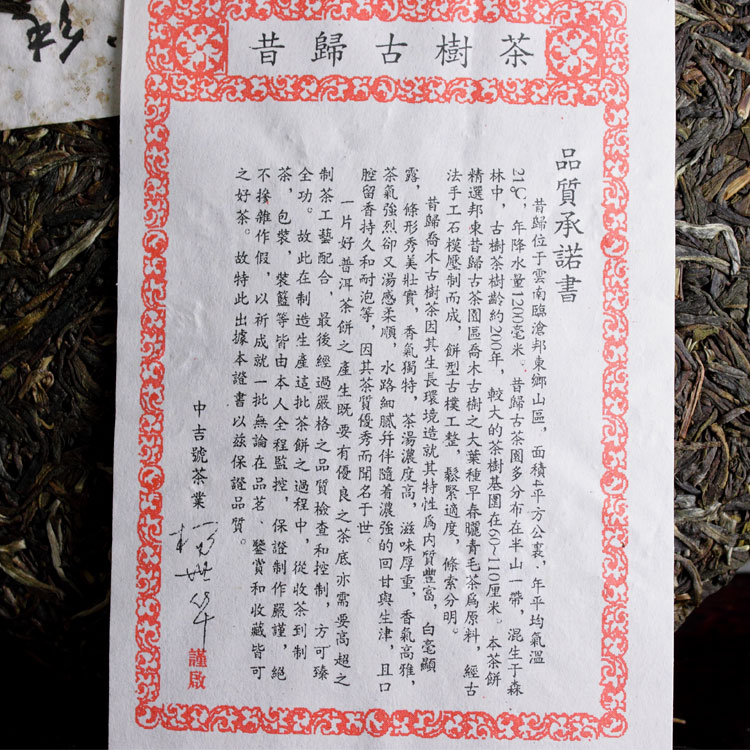 昔歸古樹茶
品質承諾書
昔歸位于雲南臨滄邦東鄉山區，面積4平方公裏、年平均氣溫
21℃，年降水量1200毫米，昔歸古茶園多分布在半山一帶，混生于森
林中，古樹茶樹齡約200年，較大的茶樹基圍在60~110厘米。本茶餅
精選邦東昔歸古茶園區喬木古樹之大葉種早春曬青毛茶爲原料，經古
法手工石模壓制而成，餅型古樸工整，鬆緊適度，條索分明。
昔歸喬木古樹茶因其生長環境造就其特性爲内質豐富，白毫顯
露，條形秀美壯實，香氣獨特，茶湯濃度高，滋味厚重，香氣高雅，
茶氣強烈卻又湯感柔順，水路細膩并伴隨着濃強的回甘與生津，且口
腔留香持久和耐泡等，因其茶質優秀而聞名于世。
一片好普洱茶餅之產生既要有優良之茶底亦需要高超之
制茶工藝配合，最後經過嚴格之品質檢查和控制，方可臻
全功。故此在制造生產這批茶餅之過程中，從收茶到制
茶，包裝，裝籃等皆由本人全程監控，保證制作嚴謹，絕
不摻雜作假，以祈成就一批無論在品茗、鑒賞和收藏皆可
之好茶。故特此出據本證書以兹保證品質。
中吉號茶業
謹啟